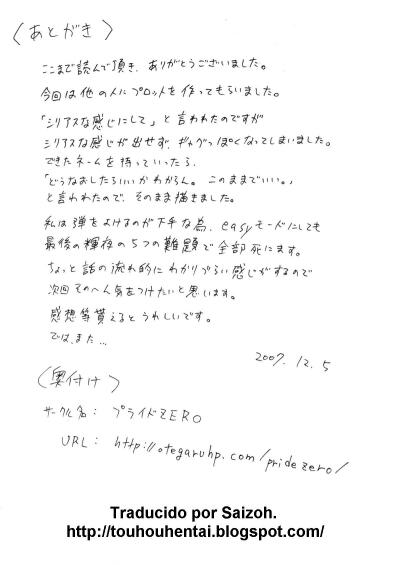 〈あとがき〉
ここまで読んで頂き、ありがとうございました。
今回は他の人にプロットを作ってもらいました。
「シリアスな感じにして」と言われたのですが
シリアスな感じが出せず、ギャグっぽくなってしまいました。
できたネームを持っていったら、
「どうなおしたらいいかわからん。このままでいい。」
と言われたので、そのまま描きました。
私は弾をよけるのが下手な為、easyモードにしても
最後の輝夜の5つの難題で全部死にます。
ちょっと話の流れ的にわかりづらい感じがするので
次回そのへん気をつけたいと思います。
感想等貰えるとうれしいです。
では、また…
2007. 12. 5
〈奥付け〉
サークル名: プライドZERO
URL: http://otegaruhp.com/pridezero/
Traducido por Saizoh.
http://touhouhentai.blogspot.com/